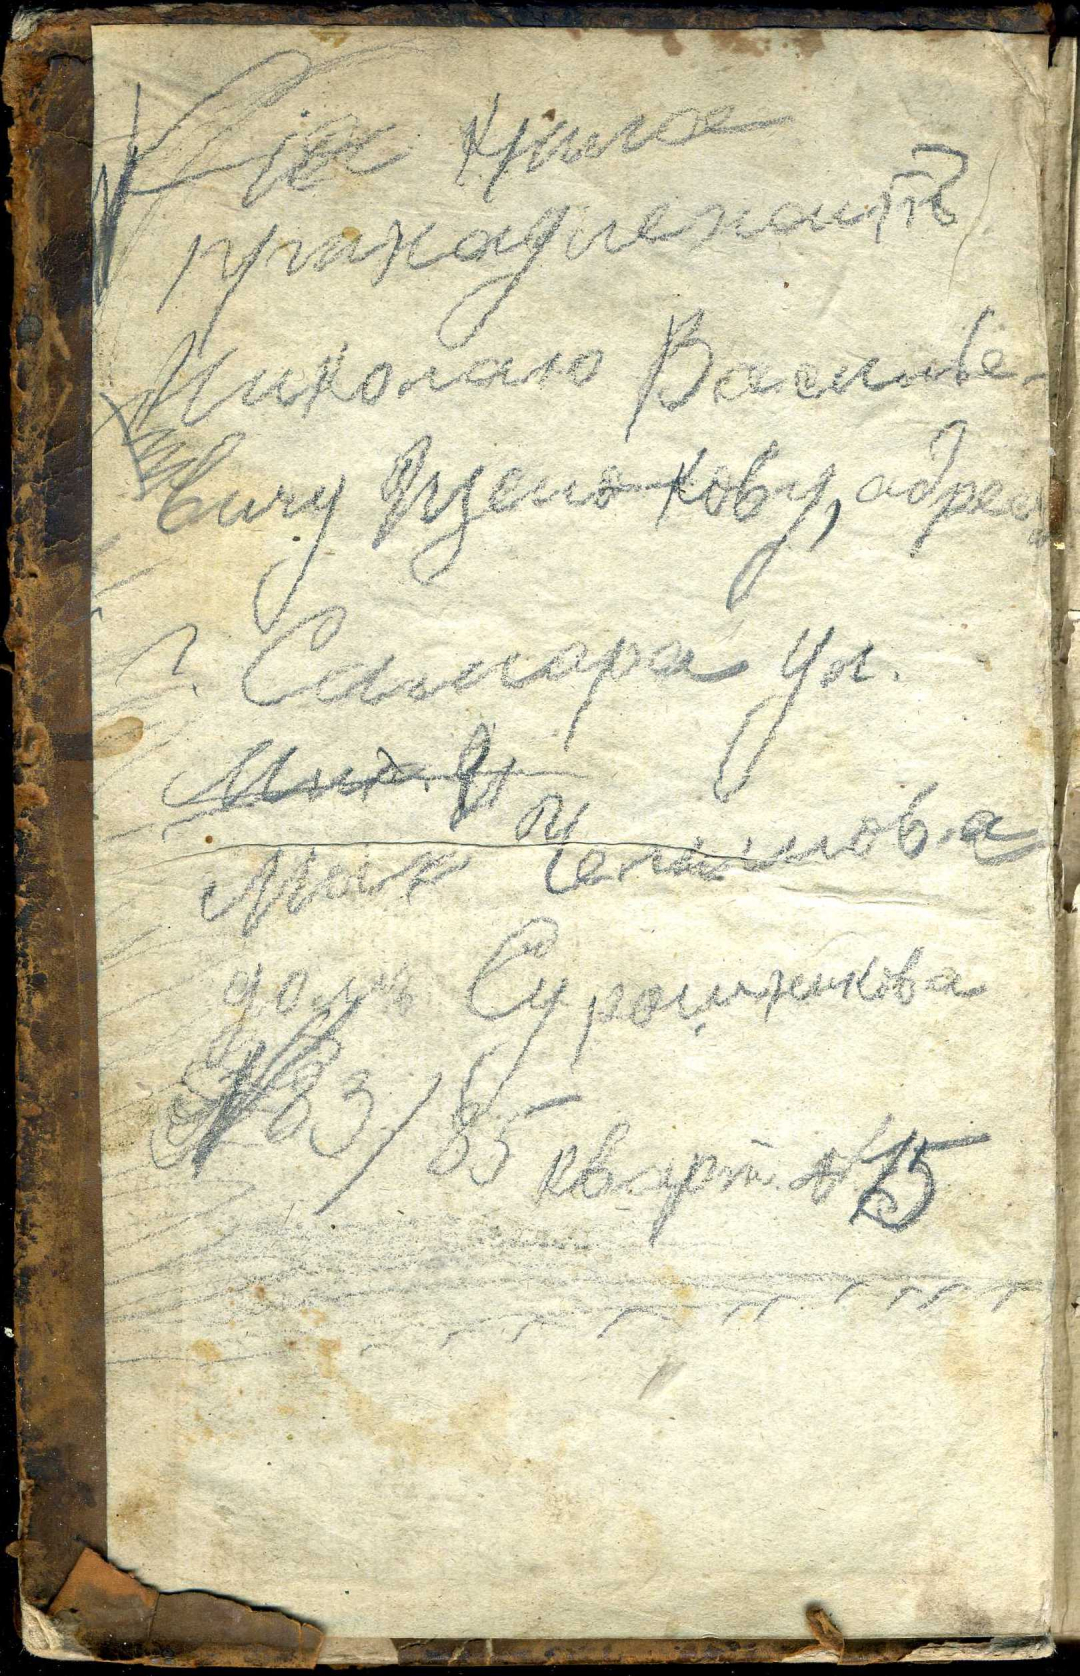 Сія книга
принадлежитъ
Николаю Василье-
вичу Щенокову, адрес
г. Самара ул.
Мих.
Мих Челышова
домъ Сурошникова
№ 83/85 кварт. № 15